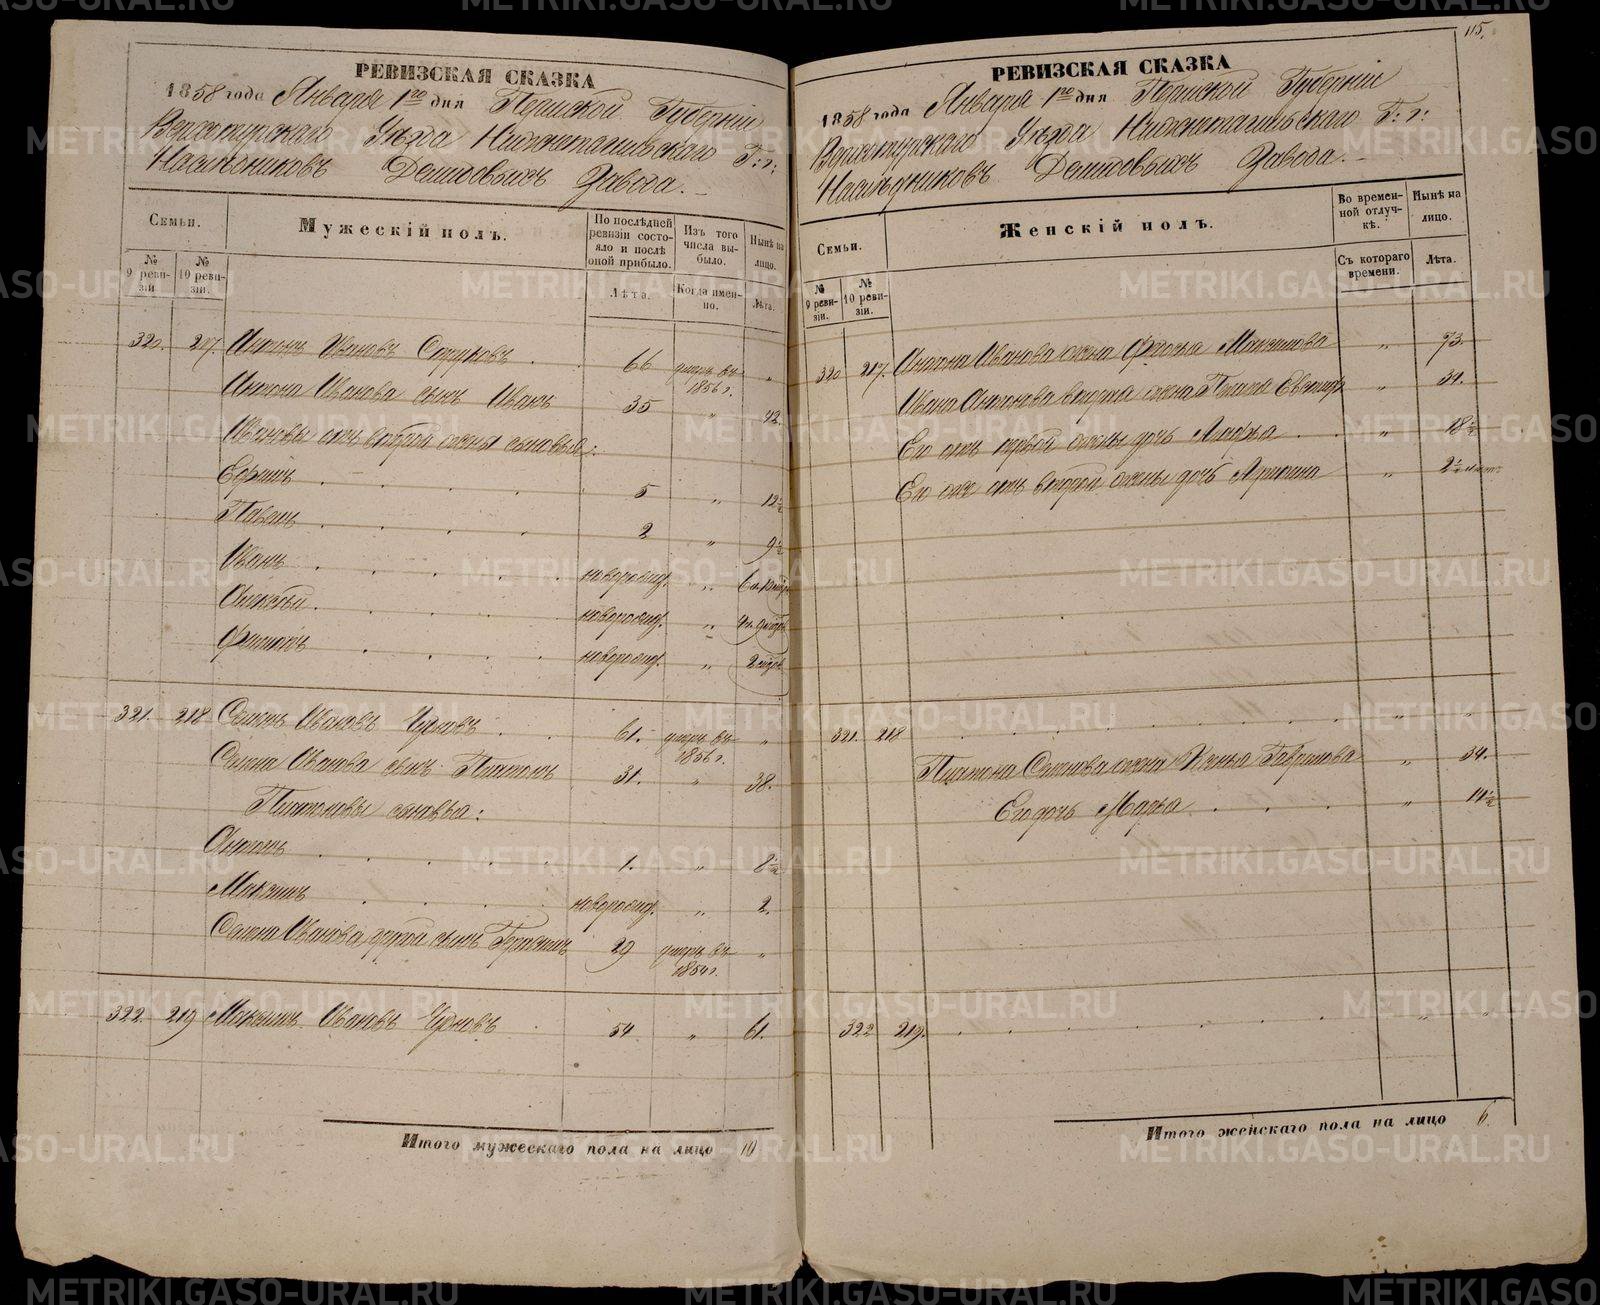 РЕВИЗСКАЯ СКАЗКА
1858 года Января 1го дня Пермской Губернiи
Верхотурскаго Уѣзда Нижнетагильскаго Г: г:
Наслѣдниковъ Демидовыхъ Завода.
Семьи.
Мужескiй полъ.
По послѣдней ревизiи состояло и послѣ оной прибыло.
Изъ того числа выбыло.
Нынѣ на лицо.
№ 9 ревизiи
№ 10 ревизiи.
Лѣта.
Когда именно.
Лѣта.
320. 217. Антонъ Ивановъ 66 умеръ въ 1856 г. „
Антона Иванова сынъ Иванъ 35 „ 42.
Ивановы отъ второй жены сыновья:
Ефимъ 5 „ 12½
Павелъ 2 „ 9½
Иванъ новорожд. „
Алексѣй новорожд. „
Филипъ новорожд. „
321. 218 Семенъ Ивановъ Чурковъ 61. умеръ въ 1856 г. „
Семена Иванова сынъ Платонъ 31. „ 38.
Платоновы сыновья:
Антонъ 1. „ 8½
Максимъ новорожд. „ 2.
Семена Иванова другой сынъ 29 умеръ въ 1854 г. „
322. 219 Максимъ Ивановъ 54 „ 61.
Итого мужескаго пола на лицо 10
115.
РЕВИЗСКАЯ СКАЗКА
1858 года Января 1го дня Пермской Губернiи
Верхотурскаго Уѣзда Нижнетагильскаго Г: г:
Наслѣдниковъ Демидовыхъ Завода.
Семьи.
Женскiй полъ.
Во временной отлучкѣ.
Нынѣ на лицо.
№ 9 ревизiи.
№ 10 ревизiи.
Съ котораго времени.
Лѣта.
320 217. Антона Иванова жена Максимова „ 73.
Ивана Антонова вторая жена „ 34.
Его отъ первой жены дочь Марфа „ 18½
Его же отъ второй жены дочь „
321. 218 „ „
Платона Семенова жена Гаврилова „ 34.
Его дочь Марья „ 14½
322 219. „ „
Итого женскаго пола на лицо 6.
METRIKI.GASO-URAL.RU